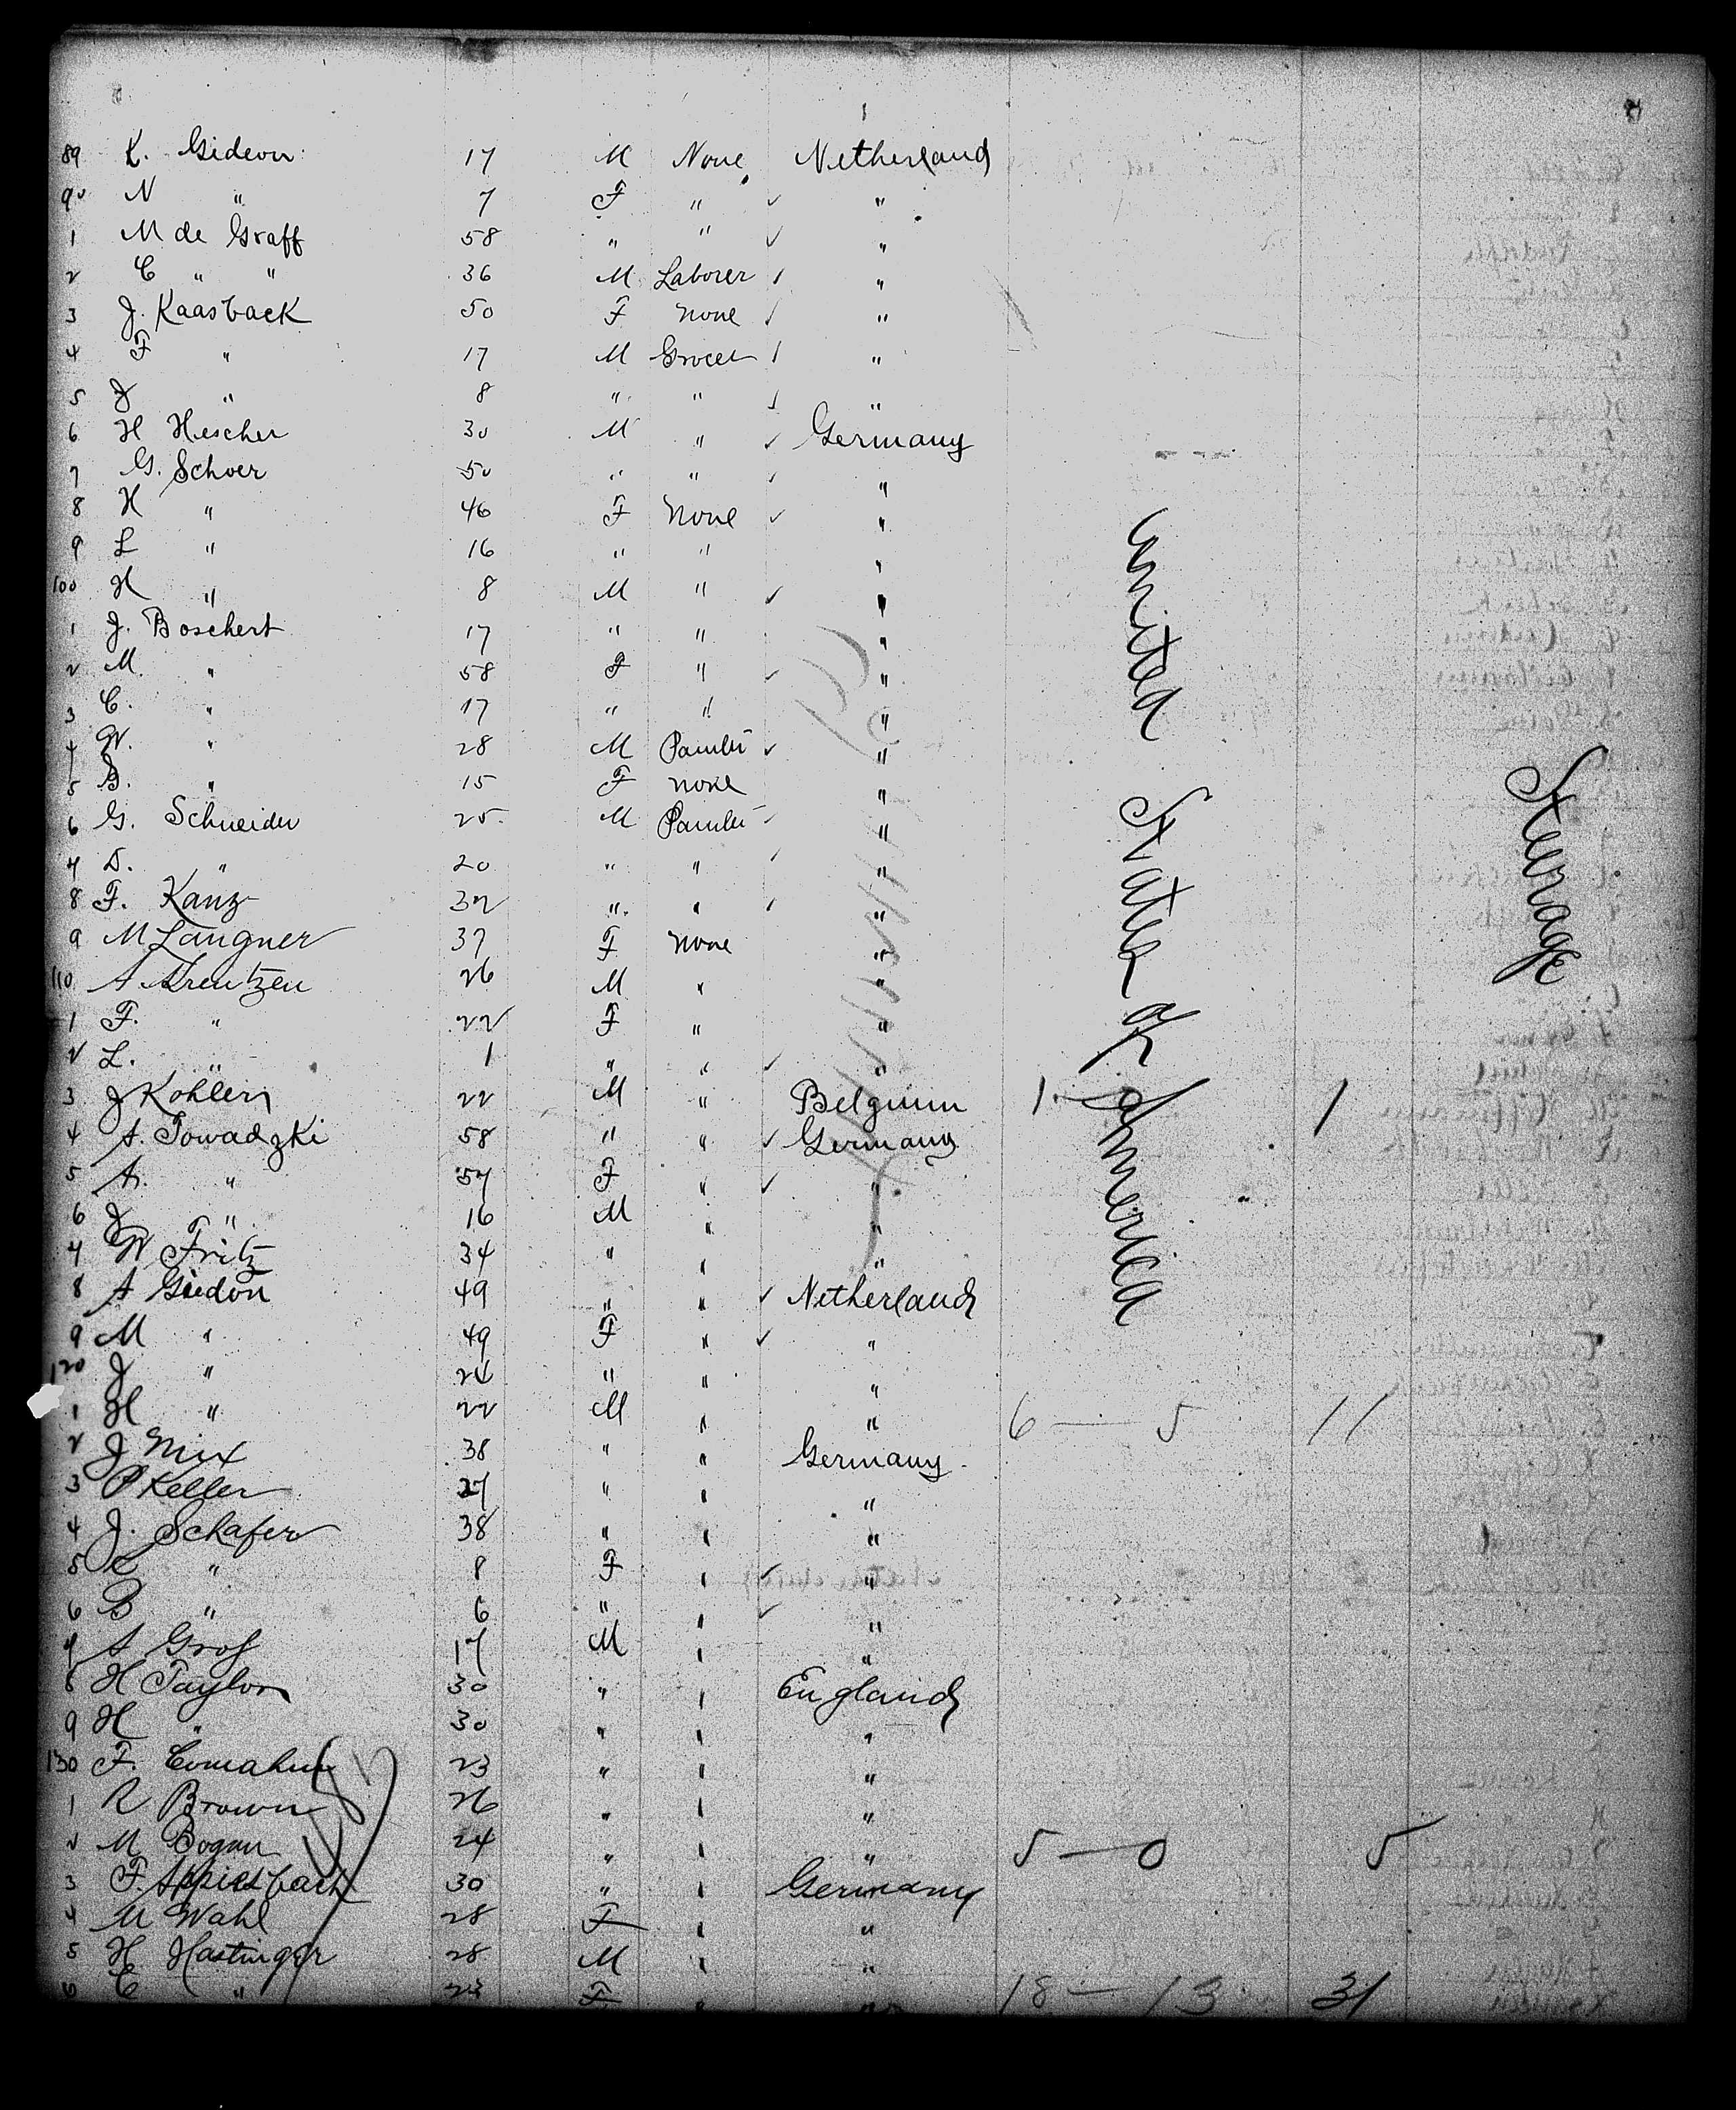 89 K. Gideon 17 M None Netherland
90 N " 7 F " "
1 M de Graff 58 " " "
2 C " " 36 M Laborer "
3 J. Kaasback 50 F None "
4 F " 17 M Grocer "
5 J " 8 " " "
6 H Hescher 30 M " Germany
7 G. Schoer 50 " " "
8 H " 46 F None "
9 L " 16 " " "
100 H " 8 M " "
1 J. Boschert 17 " " "
2 M. " 58 F " "
3 C. " 17 " " "
4 W. " 28 M "
5 B. " 15 F None "
6 G. Schneider 25 M "
7 D. " 20 " " "
8 F. Kanz 32 " " "
9 M Langner 37 F None "
110 A. 26 M " "
1 F. " 22 F " "
2 L. " 1 " " "
3 J Kohlern 22 M " Belgium 1 1
4 A. Towadzki 58 " " Germany
5 A. " 57 F " "
6 J " 16 M " "
7 W Fritz 34 " " "
8 A Giedon 49 " " Netherland
9 M " 49 F " "
120 J " 24 " " "
1 H " 22 M " " 6 — 5 11
2 J Mix 38 " " Germany
3 P Keller 27 " " "
4 J. Schafer 38 " " "
5 C " 8 F " "
6 B " 6 " " "
7 A Grof 17 M " "
8 H Taylor 30 " " England
9 H " 30 " " "
130 F. 23 " " "
1 R Brown 26 " " "
2 M Bogan 24 " " " 5 — 0 5
3 F. 30 " " Germany
4 M Wahl 28 F " "
5 H. Hastinger 28 M " "
6 C " 23 F " " 18 — 13 31
United States of America
Steerage